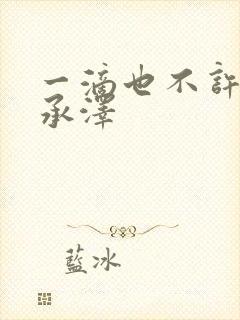 一滴也不許
承澤
藍冰